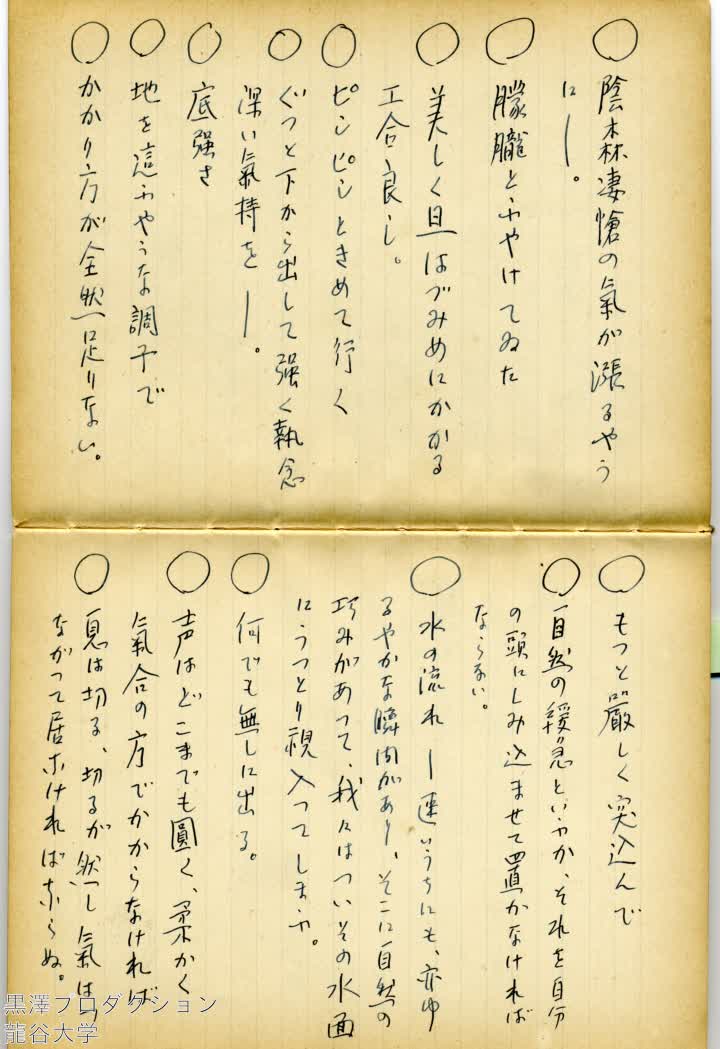 陰森凄愴の氣が漲るやう
に―。
朦朧とふやけてゐた
美しく且はづみめにかかる
工合良し。
ピンピンときめて行く
ぐつと下から出して強く執念
深い氣持を―。
底强さ
地を這ふやうな調子で
かかり方が全然足りない。
もつと嚴しく突込んで
自然の緩急といふか、それを自分
の頭にしみ込ませて置かなければ
ならない。
水の流れ―速いうちにも、亦ゆ
るやかな瞬間があり、そこに自然の
巧みがあつて、我々はついその水面
にうつとり視入つてしまふ。
何でも無しに出る。
声はどこまでも圓く、柔かく
氣合の方でかからなければ
息は切る、切るが然し氣はつ
ながつて居なければならぬ。
黒澤プロダクション
龍谷大学